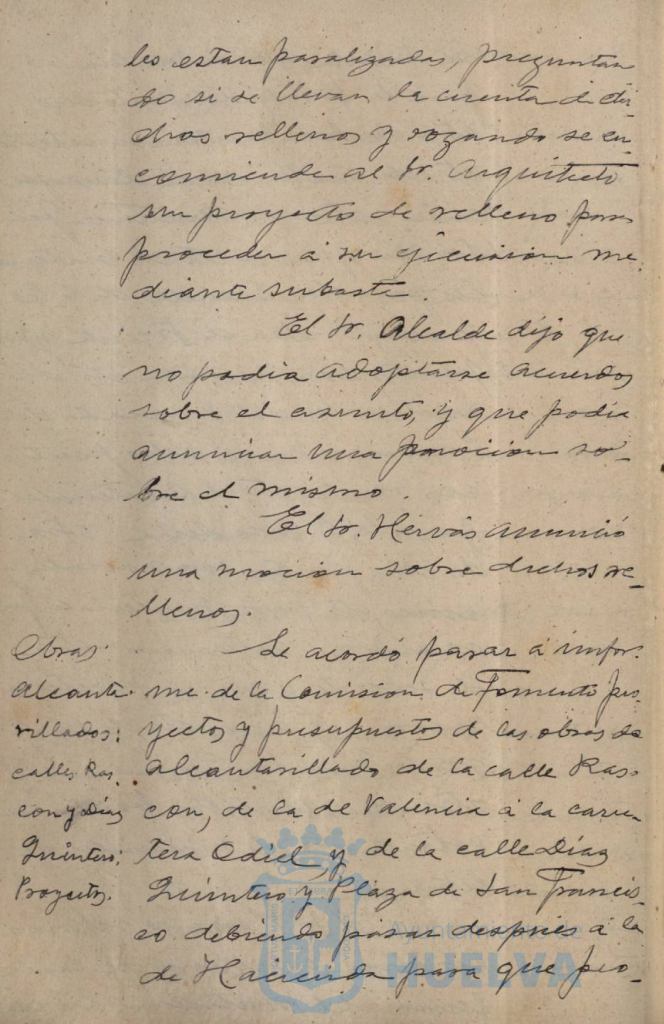 les estan paralizadas, preguntan
do si se llevan la cuenta de di-
chos rellenos y rogando se en-
comiende al Sr. Arquitecto
un proyecto de relleno para
proceder á su ejecucion me-
diante subasta.
El Sr. Alcalde dijo que
no podia adoptarse acuerdos
sobre el asunto, y que podia
anunciar una mocion so-
bre el mismo.
El Sr. Hervás anunció
una mocion sobre dichos re-
llenos.
Obras.
Alcanta-
rillados:
calles Ras-
con y Diaz
Quintero:
Proyectos.
Se acordó pasar á infor-
me de la Comision de Fomento pro-
yectos y presupuestos de las obras de
alcantarillado de la calle Ras-
con, de la de Valencia á la carre-
tera Odiel, y de la calle Diaz
Quintero y Plaza de San Francis-
co debiendo pasar despues á la
de Hacienda para que pro-
Ayuntamiento de
HUELVA